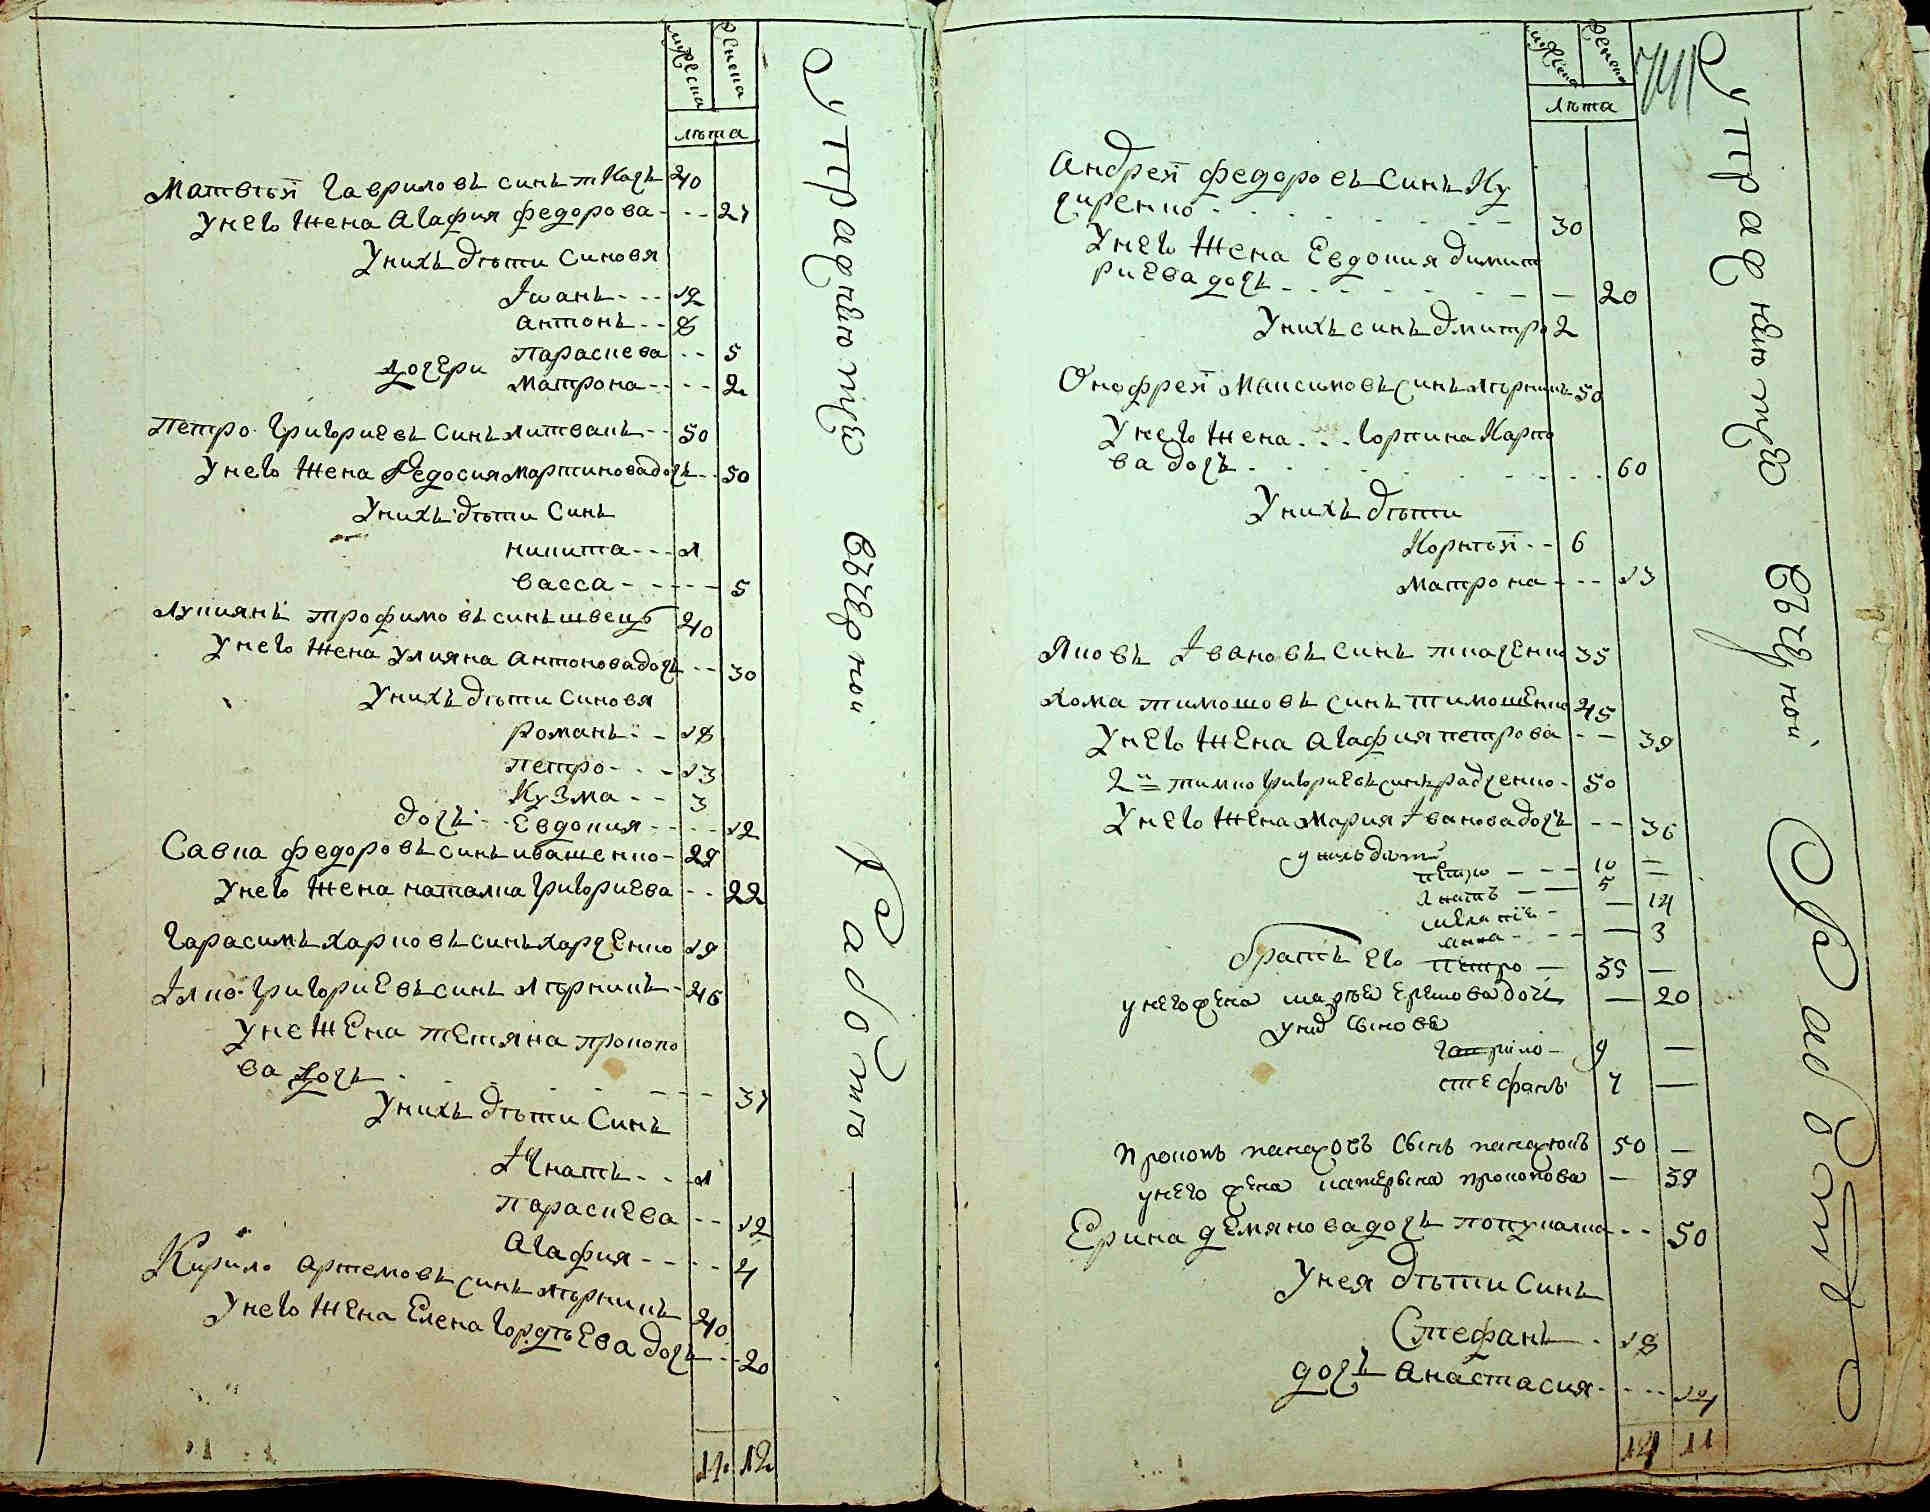 мужеска
женска
лѣта
Матвѣй Гавриловъ синъ ткачъ 40
Унего жена Агафия Федорова - - - 27
Унихъ дѣти синовя
Іванъ - - - 12
антонъ - - 8
дочери Параскева - - 5
Матрона - - - - 2
Петро Григориевъ синъ литванъ - - 50
Унего жена Федосия мартиновадочъ - - 50
Унихъ дѣти Синъ
никита - - - 1
васса - - - - - 5
Лукиянъ трофимовъ синъ швецъ 40
Унего жена Улияна антоновадочъ - - 30
Унихъ дѣти синовя
Романъ - - 18
петро - - - 13
Кузма - - 3
дочъ - - Евдокия - - - - 12
Савка федоровъ синъ ивашенко - 28
Унего жена наталка Григориева - - 22
Гарасимъ карповъ синъ харченко 19
Ілко Григориевъ синъ лѣрникъ - 46
Уне жена тетяна прокопо
ва дочъ - - - - - - - 37
Унихъ дѣти Синъ
Ігнатъ - - - 1
параскева - - 12
Агафия - - - - 4
Кирило артемовъ синъ лѣрникъ 40
Унего жена Елена Гордѣева дочъ - - 20
12 12
Упраднѣютъ вѣчерной Работы
мужеска
женска
741
лѣта
Андрей федоровъ синъ Ку
чиренко - - - - - - - 30
Унего жена Евдокия димит
риева дочъ - - - - - - - 20
Унихъ синъ дмитро 2
Онофрей Максимовъ синъ лѣрникъ 50
Унего жена - - - горпина Карпо
ва дочъ - - - - - - - - 60
Унихъ дѣти
Корнѣй - - 6
матрона - - - 13
Яковъ Івановъ синъ ткаченко 35
хома тимошовъ синъ тимошенко 45
Унего жена Агафия петрова - - 39
2й тимко григориевъ синъ радченко - 50
Унего жена Мария Івановадочъ - - 36
у нихъ дѣти
петро - - - 10 —
Ігнатъ - — 5 —
— 14
анна - - - — 3
братъ его петро — 35 —
у него жена марѣя дочъ — 20
синовя
гаврило - 9 —
стефанъ 7 —
Прокопъ синъ 50 —
унего жена катерына прокопова — 38
Ерина демяновадочъ - - 50
Унея дѣти синъ
Стефанъ - 18
дочъ анастасия - - - - 14
14 11
Упраднѣютъ вѣчерной Работы